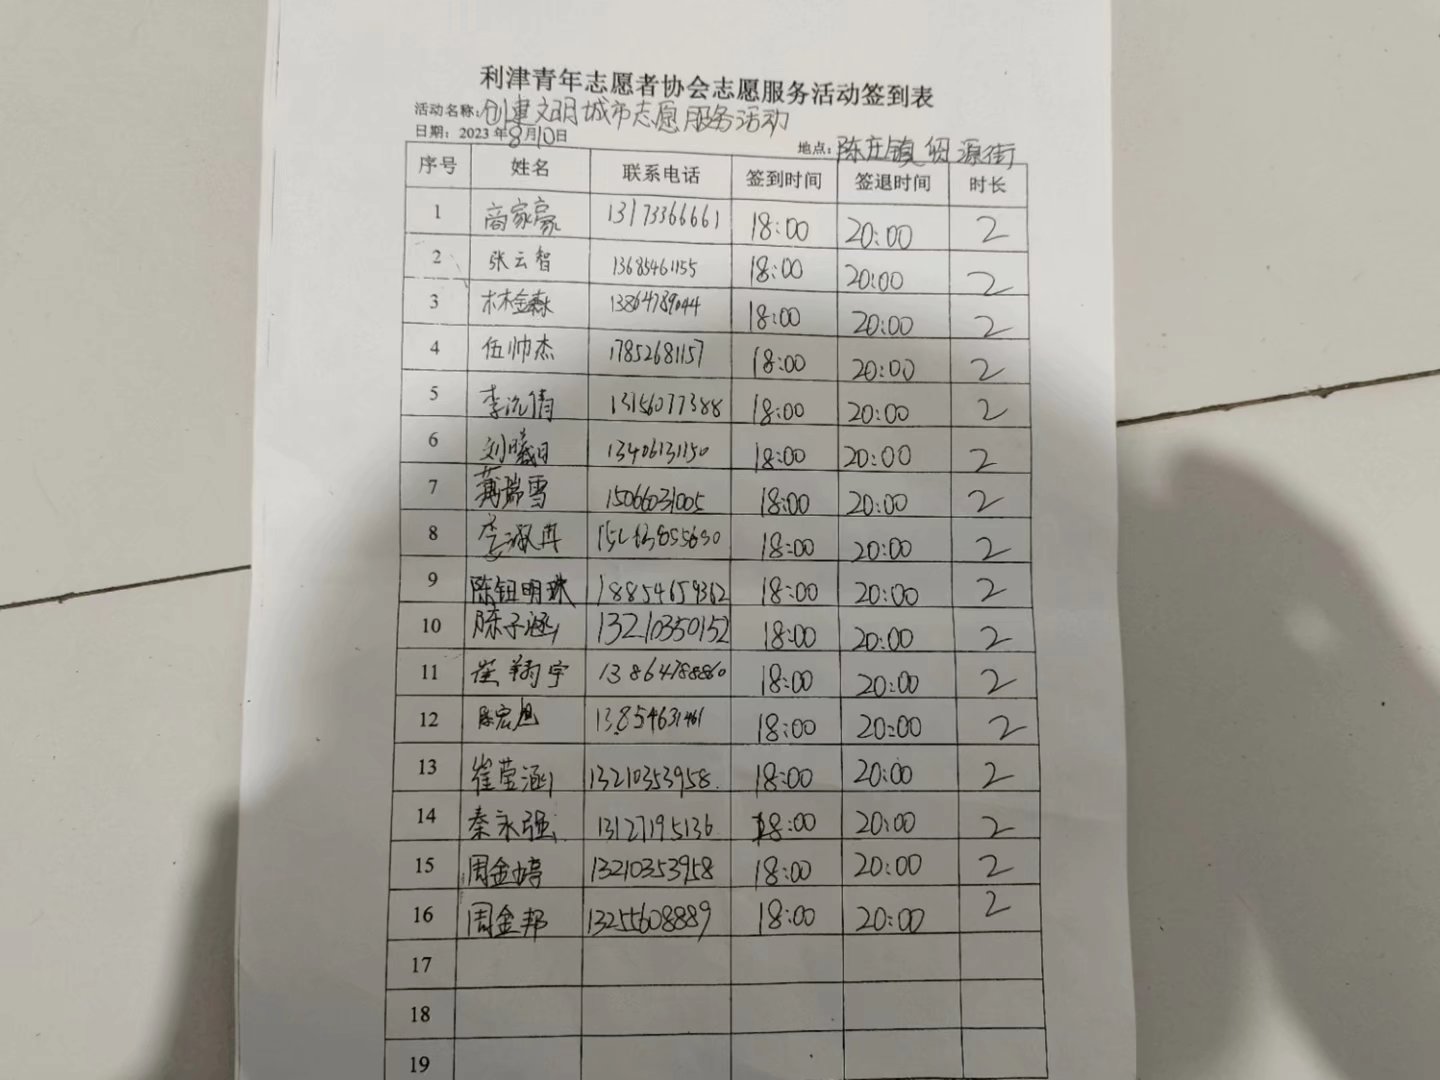 利津青年志愿者协会志愿服务活动签到表
活动名称:创建文明城市志愿服务活动
日期：2023年8月10日
地点：陈庄镇 源街
序号 姓名 联系电话 签到时间 签退时间 时长
1 商家豪 13173366661 18:00 20:00 2
2 张云智 13685461155 18:00 20:00 2
3 林金森 13864789044 18:00 20:00 2
4 伍帅杰 17852681157 18:00 20:00 2
5 李沅倩 13156077388 18:00 20:00 2
6 刘曦 13406131150 18:00 20:00 2
7 瑞雪 15066031005 18:00 20:00 2
8 李淑冉 18:00 20:00 2
9 陈钼明珠 18854659362 18:00 20:00 2
10 陈子涵 13210350152 18:00 20:00 2
11 崔翔宇 13864788860 18:00 20:00 2
12 陈宏旭 13854631461 18:00 20:00 2
13 崔莹涵 13210353958 18:00 20:00 2
14 秦永强 13127195136 18:00 20:00 2
15 周金婷 13210353958 18:00 20:00 2
16 周金邦 13255608889 18:00 20:00 2
17
18
19